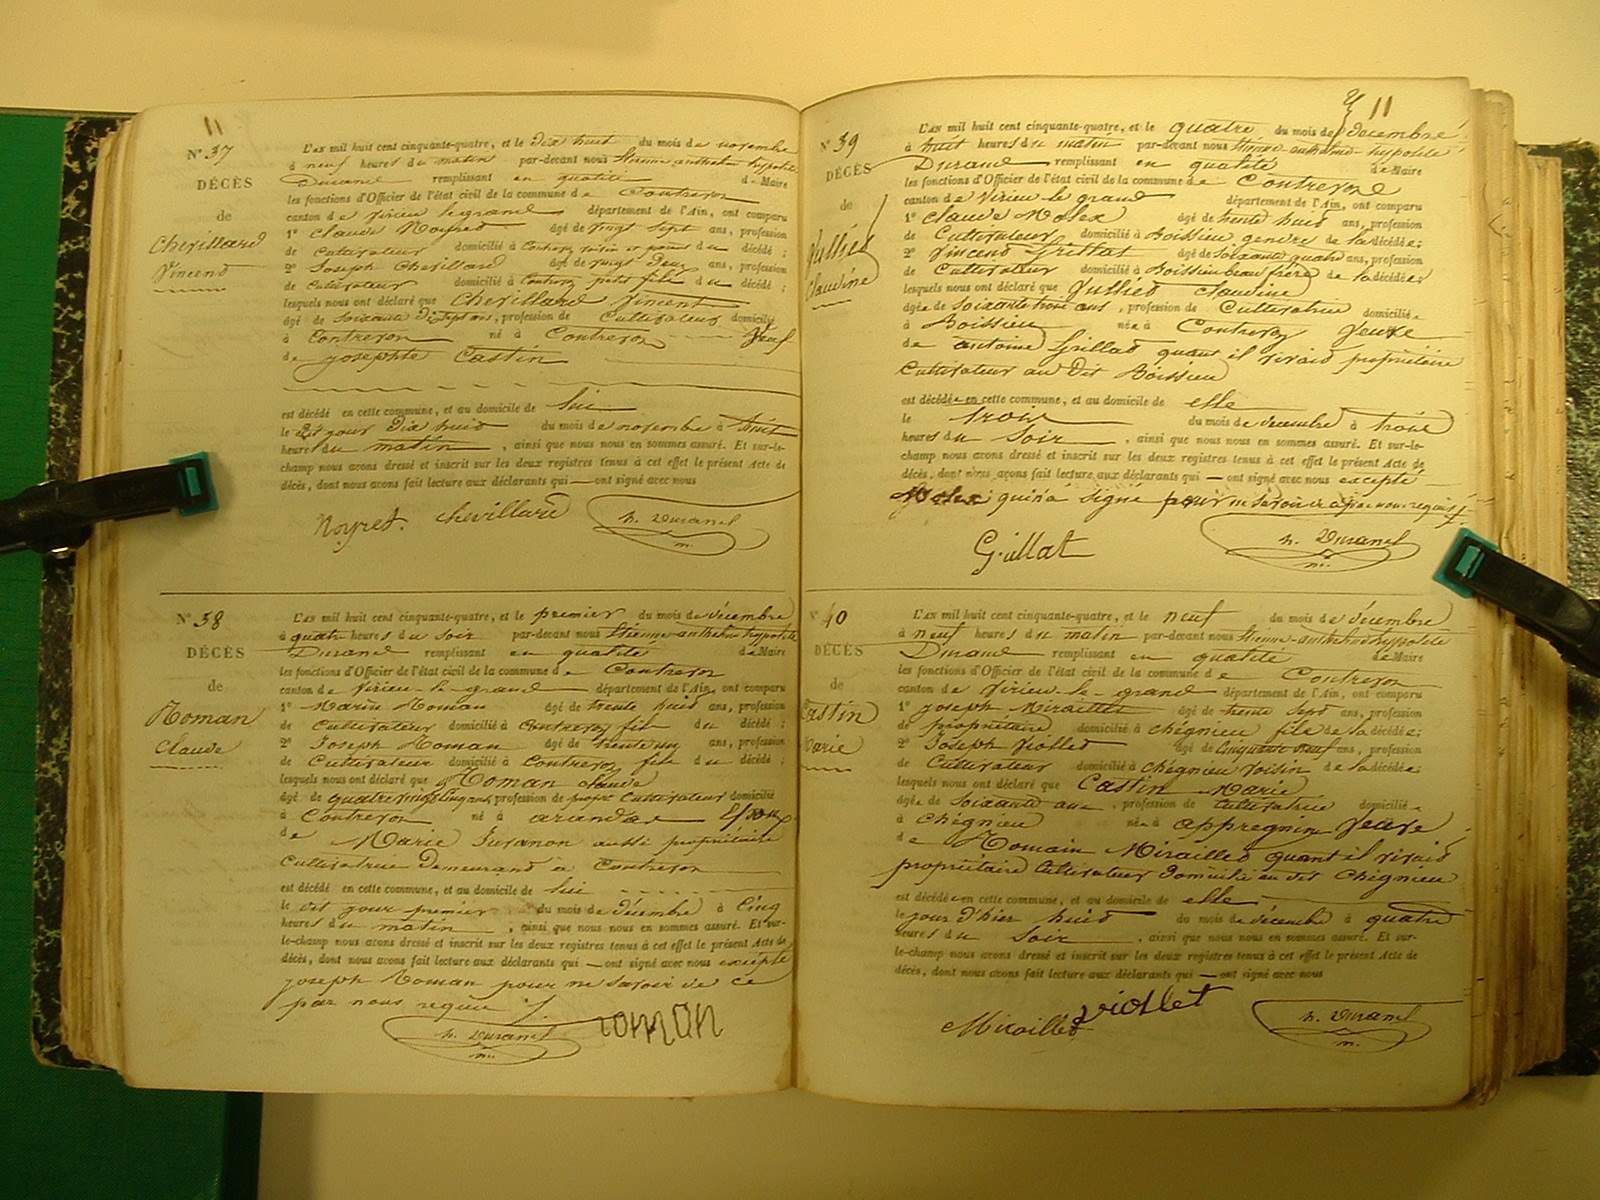 11
N° 37
DÉCÈS
de
Chevillard
Vincent
L'AN mil huit cent cinquante-quatre, et le dix huit du mois de novembre
à neuf heures du matin par-devant nous Etienne anthelme hypolite
Durand remplissant en qualité de Maire
les fonctions d'Officier de l'état civil de la commune de Contrevoz
canton de Virieu le grand département de l'Ain, ont comparu
1° Claude Noyret âgé de vingt sept ans, profession
de Cultivateur domicilié à Contrevoz voisin du décédé ;
2° Joseph Chevillard âgé de vingt deux ans, profession
de Cultivateur domicilié à Contrevoz petit fils du décédé ;
lesquels nous ont déclaré que Chevillard Vincent
âgé de soixante dix sept ans, profession de Cultivateur domicilié
à Contrevoz né à Contrevoz Veuf
de josephte Castin
est décédé en cette commune, et au domicile de lui
le dit jour dix huit du mois de novembre à huit
heures du matin, ainsi que nous nous en sommes assuré. Et sur-le-
champ nous avons dressé et inscrit sur les deux registres tenus à cet effet le présent Acte de
décès, dont nous avons fait lecture aux déclarants qui — ont signé avec nous
Noyret. chevillard h. Durand
m.
N° 38
DÉCÈS
de
Roman
Claude
L'AN mil huit cent cinquante-quatre, et le premier du mois de décembre
à quatre heures du soir par-devant nous Etienne-anthelme hypolite
Durand remplissant en qualité de Maire
les fonctions d'Officier de l'état civil de la commune de Contrevoz
canton de Virieu-le-grand département de l'Ain, ont comparu
1° Marin Roman âgé de trente huit ans, profession
de Cultivateur domicilié à Contrevoz fils du décédé ;
2° Joseph Roman âgé de trente un ans, profession
de Cultivateur domicilié à Contrevoz fils du décédé ;
lesquels nous ont déclaré que Roman Claude
âgé de quatre vingt cinq ans, profession de propre Cultivateur domicilié
à Contrevoz né à Epoux
de Marie Juvanon aussi propriétaire
Cultivatrice Demeurant à Contrevoz
est décédé en cette commune, et au domicile de lui
le dit jour premier du mois de décembre à Cinq
heures du matin, ainsi que nous nous en sommes assuré. Et sur-
le-champ nous avons dressé et inscrit sur les deux registres tenus à cet effet le présent Acte de
décès, dont nous avons fait lecture aux déclarants qui — ont signé avec nous excepté
joseph Roman pour ne savoir de ce
par nous requis
h. Durand roman
m.
11
N° 39
DÉCÈS
de
Julliet
Claudine
L'AN mil huit cent cinquante-quatre, et le quatre du mois de décembre
à huit heures du matin par-devant nous Etienne-anthelme-hypolite
Durand remplissant en qualité de Maire
les fonctions d'Officier de l'état civil de la commune de Contrevoz
canton de Virieu-le-grand département de l'Ain, ont comparu
1° Claude Molex âgé de trente huit ans, profession
de Cultivateur domicilié à Boissieu gendre de la décédée;
2° Vincent Grillat âgé de soixante quatre ans, profession
de Cultivateur domicilié à Boissieu beau frère de la décédée;
lesquels nous ont déclaré que Julliet Claudine
âgée de soixante trois ans, profession de Cultivatrice domiciliée
à Boissieu née à Contrevoz Veuve
de antoine Grillat quant il vivait propriétaire
Cultivateur au dit Boissieu
est décédée en cette commune, et au domicile de elle
le trois du mois de décembre à trois
heures du soir, ainsi que nous nous en sommes assuré. Et sur-le-
champ nous avons dressé et inscrit sur les deux registres tenus à cet effet le présent Acte de
décès, dont nous avons fait lecture aux déclarants qui — ont signé avec nous excepté
Molex qui n'a signé pour ne savoir de ce par nous requis
Grillat h. Durand
m.
N° 40
DÉCÈS
de
Castin
Marie
L'AN mil huit cent cinquante-quatre, et le neuf du mois de décembre
à neuf heures du matin par-devant nous Etienne-anthelme hypolite
Durand remplissant en qualité de Maire
les fonctions d'Officier de l'état civil de la commune de Contrevoz
canton de Virieu-le-grand département de l'Ain, ont comparu
1° joseph Miraillet âgé de trente sept ans, profession
de propriétaire domicilié à Chégnieu fils de la décédée;
2° Joseph Viollet âgé de Cinquante neuf ans, profession
de Cultivateur domicilié à Chégnieu voisin de la décédée;
lesquels nous ont déclaré que Castin Marie
âgée de soixante ans, profession de Cultivatrice domiciliée
à Chégnieu née à appregnin Veuve
de Romain Miraillet quant il vivait
propriétaire Cultivateur domicilié au dit Chégnieu
est décédée en cette commune, et au domicile de elle
le jour d'hier huit du mois de décembre à quatre
heures du soir, ainsi que nous nous en sommes assuré. Et sur-
le-champ nous avons dressé et inscrit sur les deux registres tenus à cet effet le présent Acte de
décès, dont nous avons fait lecture aux déclarants qui — ont signé avec nous
Miraillet viollet h. Durand
m.